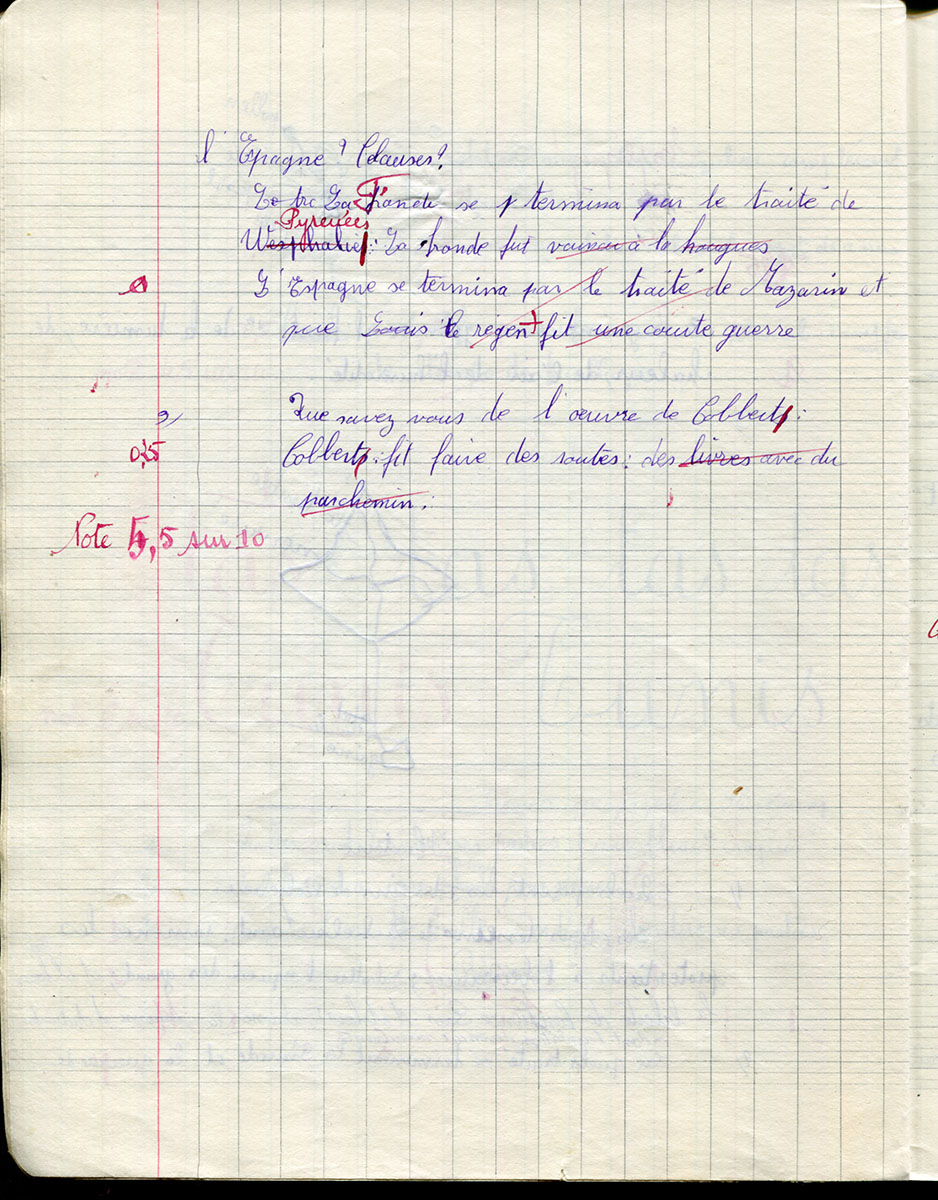 l'Espagne ? Clauses ?
La Fronde se termina par le traité de
Pyrenées
Wesphalie : La fronde fut vaincu à la hougues
0 L'Espagne se termina par le traité de Mazarin et
que Louis le régent fit une courte guerre
9/ Que savez vous de l'œuvre de Colbert :
0,25 Colbert : fit faire des routes : des livres avec du
parchemin :
Note 5,5 sur 10